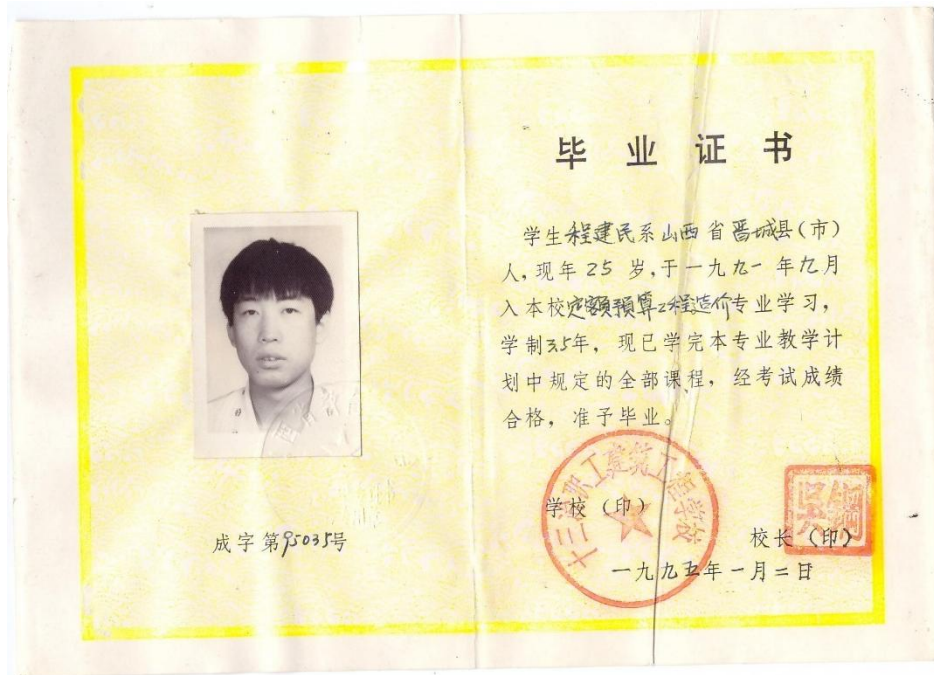 毕业证书
学生程建民系山西省晋城县(市)
人,现年25岁,于一九九一年九月
入本校定额预算工程造价专业学习,
学制3.5年,现已学完本专业教学计
划中规定的全部课程,经考试成绩
合格,准予毕业。
学校(印)
校长(印)
一九九五年一月二日
成字第95035号
职工建筑工程学校